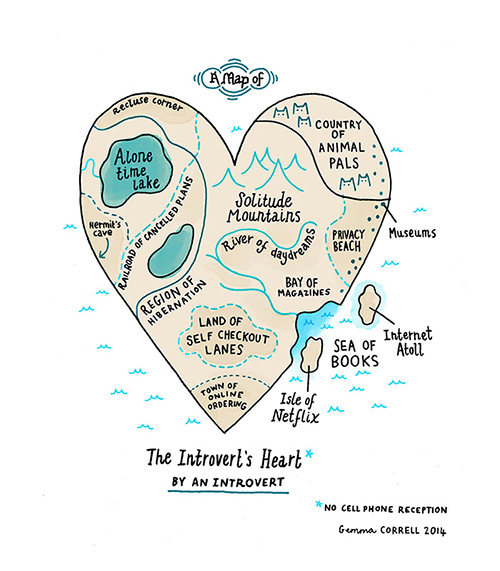 A Map of
Recluse Corner
COUNTRY
OF
ANIMAL
PALS
Alone
time
lake
Solitude
Mountains
Hermit's
cave
RAILROAD OF CANCELLED PLANS
River of daydreams
PRIVACY
BEACH
Museums
REGION OF
HIBERNATION
BAY OF
MAGAZINES
LAND OF
SELF CHECKOUT
LANES
SEA OF
BOOKS
Internet
Atoll
TOWN OF
ONLINE
ORDERING
Isle of
Netflix
The Introvert's Heart*
BY AN INTROVERT
*NO CELL PHONE RECEPTION
Gemma CORRELL 2014